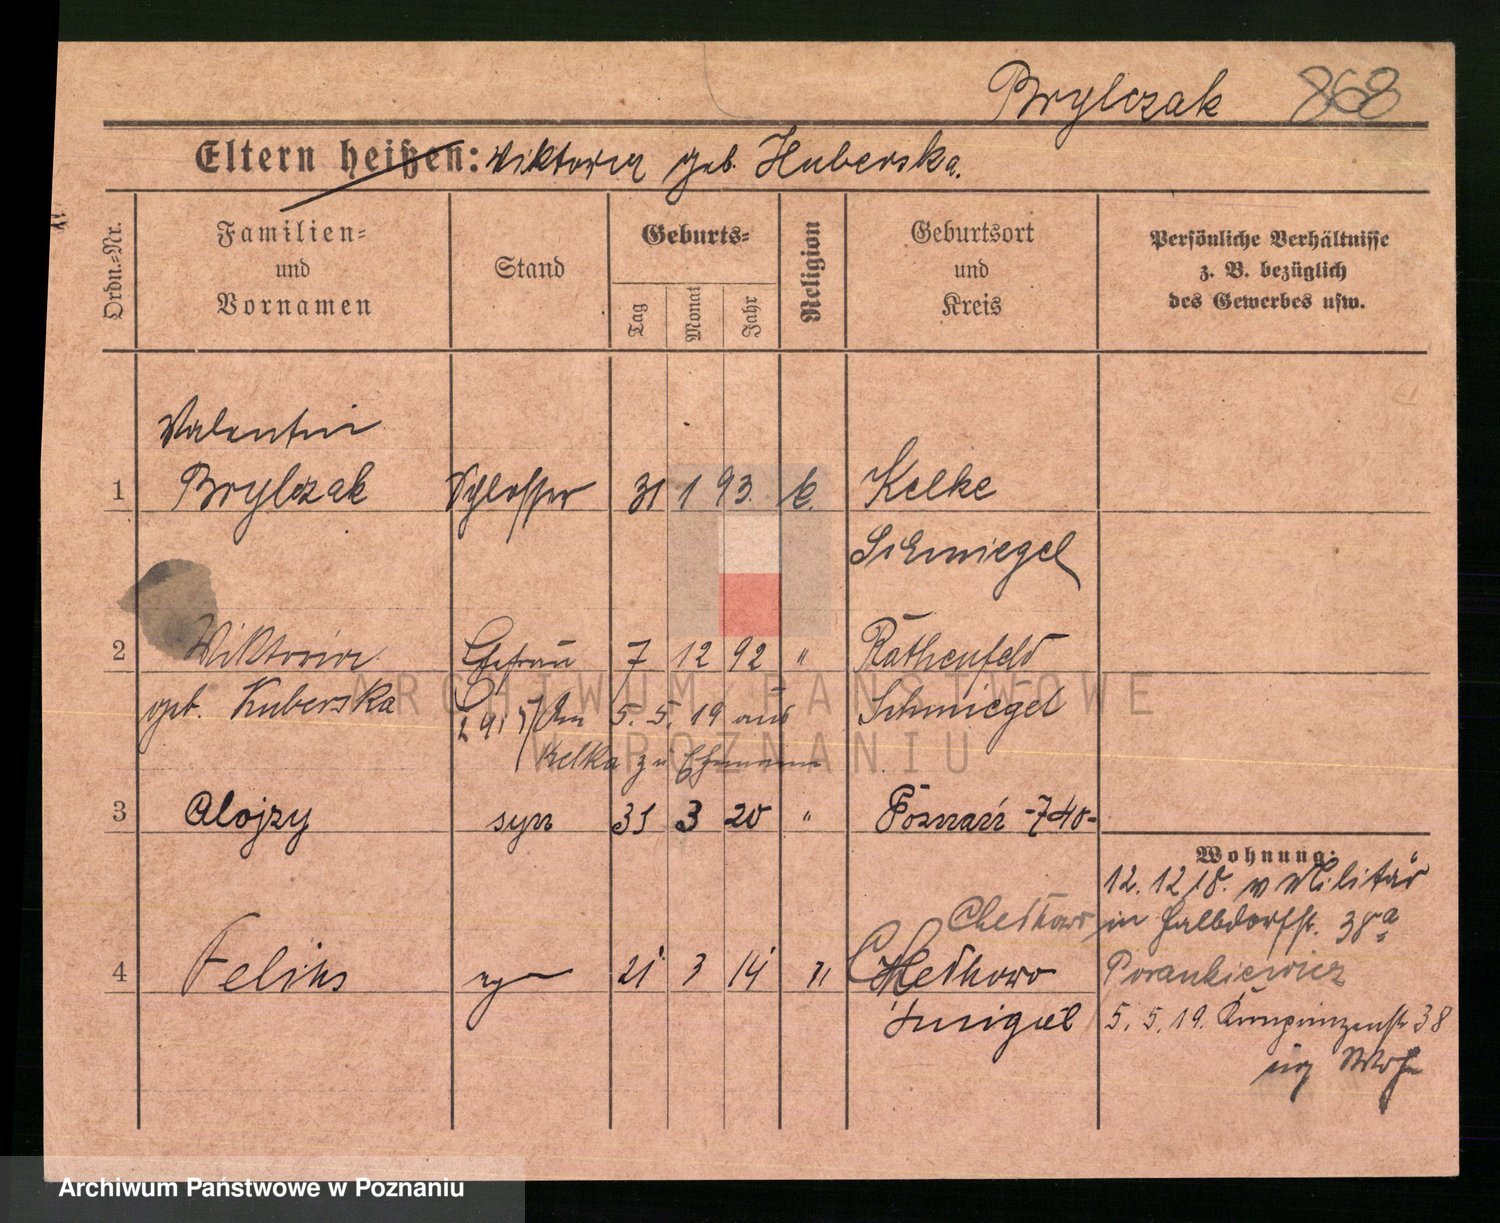 Brylczak 868
Eltern heißen: Wiktoria geb. Huberska.
Ordn.=Nr.
Familien= und Vornamen
Stand
Geburts=
Tag
Monat
Jahr
Religion
Geburtsort und Kreis
Persönliche Verhältnisse z. B. bezüglich des Gewerbes usw.
Valentin
1 Brylczak Schlosser 31 1 93. k. Kelke
Schmiegel
2 Wiktoria Ehefrau 7 12 92 " Rathenfeld
geb. Kuberska Am 5. 5. 19 aus Schmiegel
Kelka zu Ehemann
3 Alojzy syn 31 3 20 " Poznań -740-
Wohnung:
12. 12 18. v Militär
Chelkowo in Halbdorfstr. 38a
4 Feliks 21 3 14 " Chelkowo
Porankiewicz
Smigiel 5. 5. 19. Kronprinzenstr 38
ARCHIWUM PAŃSTWOWE
W POZNANIU
Archiwum Państwowe w Poznaniu